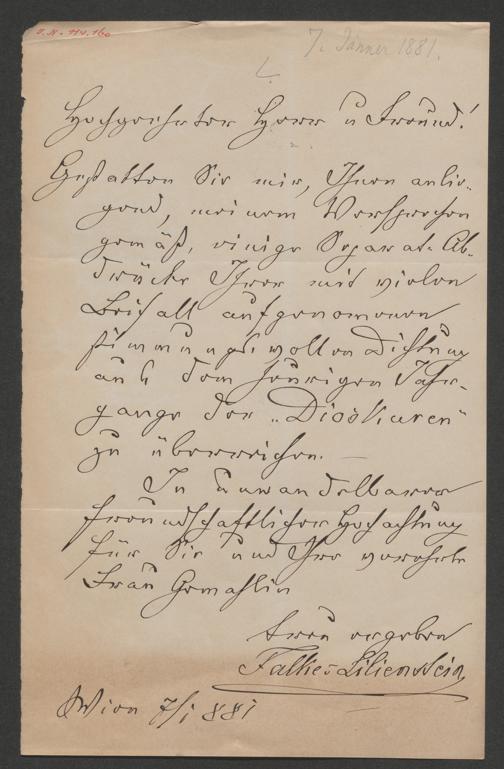 I.N. 114.160
7. Jänner 1881.
Hochgeehrter Herr u Freund!
Gestatten Sie mir, Ihnen anlie-
gend, meinem Versprechen
gemäß, einige Separat-Ab-
drücke Ihrer mit vielen
Beifall aufgenommenen
stimmungsvollen Dichtung
aus dem heurigen Jahr-
gange der „Dioskuren"
zu überreichen. —
In unwandelbarer
freundschaftlicher Hochachtung
für Sie und Ihre verehrte
Frau Gemahlin
treu ergeben
Falke-Lilienstein
Wien 7/1 881